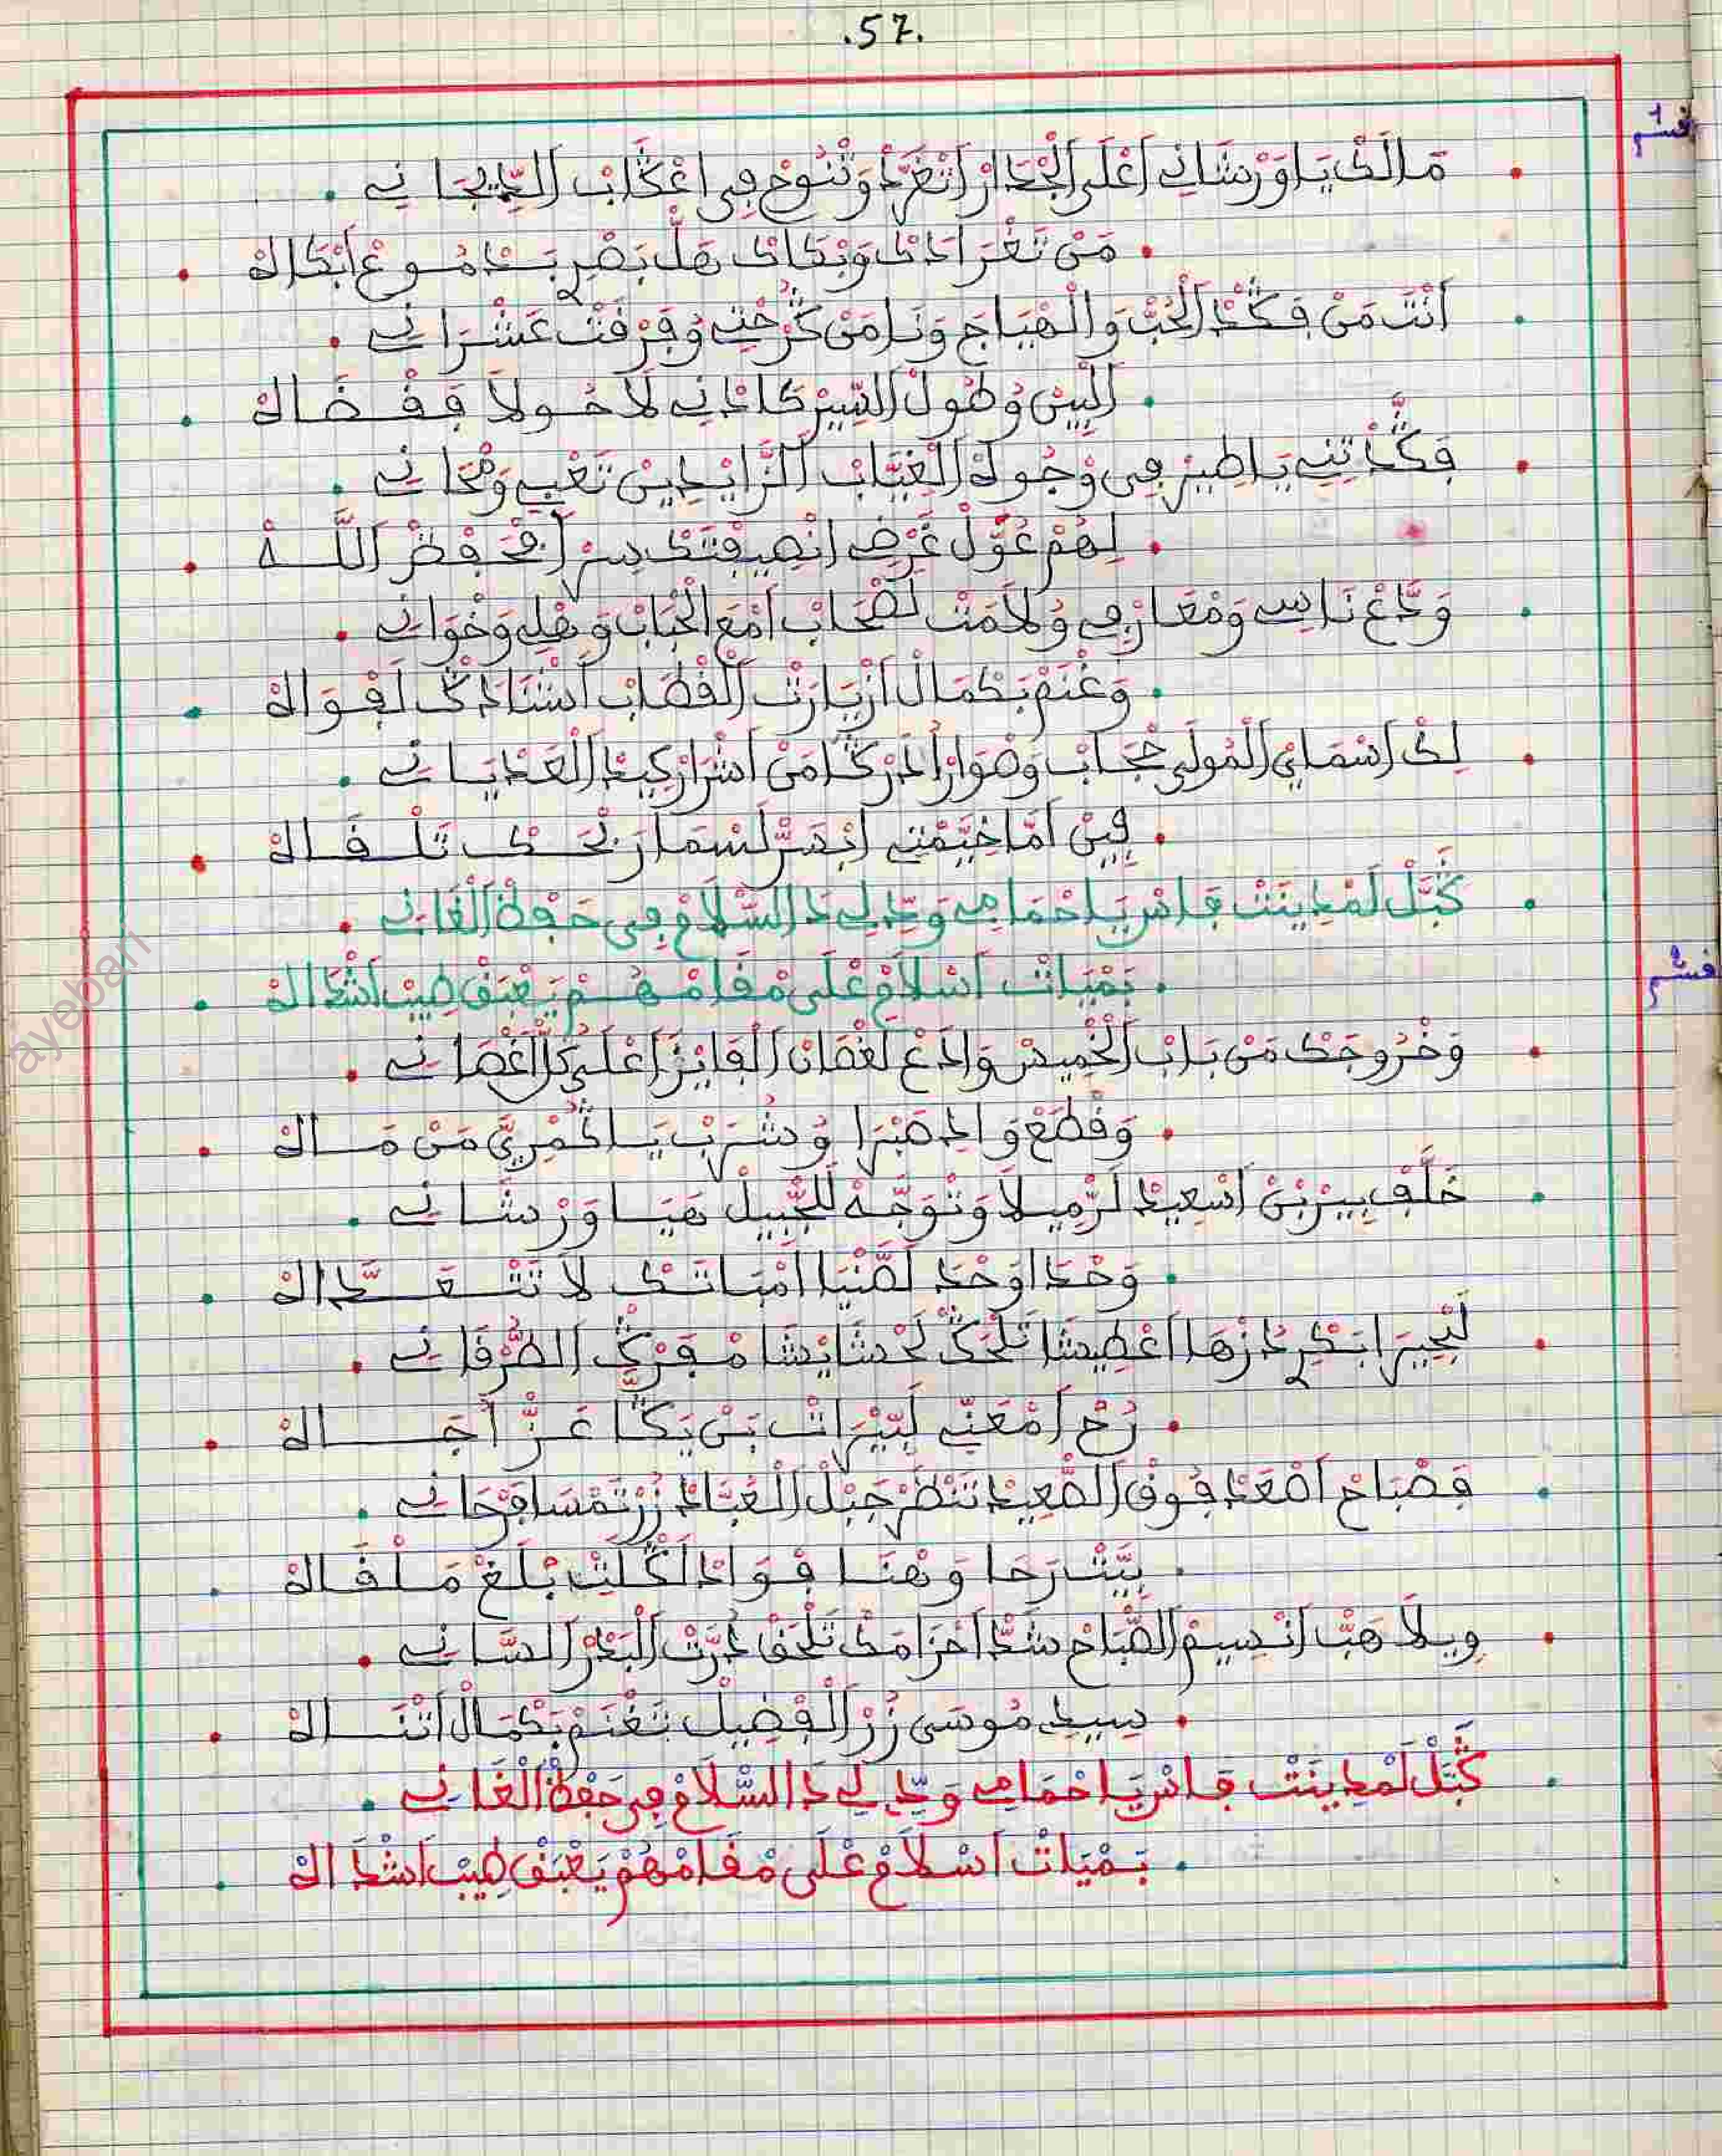 .57.
قسم 1
مَالَكْ يَا وَرْشَانِي اَعْلَى الْجْدَارْ اتْغَرَّدْ وَتْنُوحْ فِي اعْكَابْ الدِّيجَانِي
مَنْ تَغْرَادَكْ وَبْكَاكْ هَلّْ بَصْرِي بَدْمُوعْ ابْكَاهْ
اَنْتَ مَنْ فَكْدْ الْحُبّْ وَالْهِيَاجْ وَنَا مَنْ كُرْحْتِي وُفِرْقَتْ عَشْرَانِي
الْبِينْ وُطُولْ السِّيرْ كَادْنِي لَا حُولَا فَقْضَاهْ
فَكَّدْتِنِي يَا طِيرْ فِي وْجُوهْ الْغِيَّابْ الزَّايْدِينْ تَعْبِي وَمْحَانِي
لِهُمْ عَوَّلْ غَرْضِي انْصِيفْتَكْ سِرْ افْحَفْظْ اللَّهْ
وَدَّعْ نَاسِي وَمْعَارْفِي وُلَامَتْ لَصْحَابْ اَمْعَ الْحْبَابْ وَهْلِي وَخْوَانِي
وَغْنَمْ بَكْمَالْ ازْيَارْتْ الْقْطَابْ اَشْنَادَكْ لَفْوَاهْ
لِكْ اسْمَايْ الْمُولَى حْجَابْ وَصْوَارْ الدَّرْكَا مَنْ اَشْرَارْ كِيدْ الْعَدْيَانِي
فِينْ اَمَّا خَيَّمْتِي ابْصَرّْ لَسْمَا رَبْحَكْ تَلْقَاهْ
كَبَّلْ لَمْدِينَتْ فَاسْ يَا حْمَامِي وَدِّي لِي دَا السَّلَامْ فِي حَفْظْ الْغَانِي
بَمْيَاتْ اَسْلَامْ عْلَى مْقَامْهُمْ يَعْبَقْ طِيبْ اَشْدَاهْ
قسم 2
وَخْرُوجَكْ مَنْ بَابْ الْخْمِيسْ وَادَعْ لَغْصَانْ الْفَايْزَا عْلَى كُلّْ اَغْصَانِي
وَقْطَعْ وَادْ صَبْرَا وُشْرَبْ يَا كُمْرِيَّ مَنْ مَاهْ
خَلَّفْ بِيرْ بَنْ اَسْعِيدْ لَرْمِيلَا وَتْوَجَّهْ لَلْجْبِيلْ هَيَا وَرْشَانِي
وَحْدَا وَحْدَ لَضْنَيَا امْبَاتَكْ لَا تَتْعَدَّاهْ
لَبْحِيرَا بَكْرِي دُزْهَا اعْطِيشَا تَلْحَكْ لَحْشَايْشَا مْفَرْكْ الطُّرْقَانِي
رُحْ اَمْعَنِّي لَبِّيرَاتْ بَنْ يَكَّا عَزّْ اَجَاهْ
فَصْبَاحْ اَصْعَدْ فُوقْ الصّْعِيدْ تَنْظَرْ جَبْلْ الْعُبَّادْ زُرْ تَمْسَا فَرْحَانِي
بَيَّتْ رَحَا وَهْنَا فْوَادْ لَكْلِيتْ بْلَغْ مَلْقَاهْ
وِيلَا هَبّْ اَنْسِيمْ الصّْبَاحْ شَدّْ اَحْزَامَكْ تَلْحَقْ دَرْتْ الْبَدْرْ السَّانِي
سِيدِي مُوسَى زُرْ الْفْضِيلْ تَغْنَمْ بَكْمَالْ اَثْنَاهْ
كَبَّلْ لَمْدِينَتْ فَاسْ يَا حْمَامِي وَدِّي لِي دَا السَّلَامْ فِي حَفْظْ الْغَانِي
بَمْيَاتْ اَسْلَامْ عْلَى مْقَامْهُمْ يَعْبَقْ طِيبْ اَشْدَاهْ